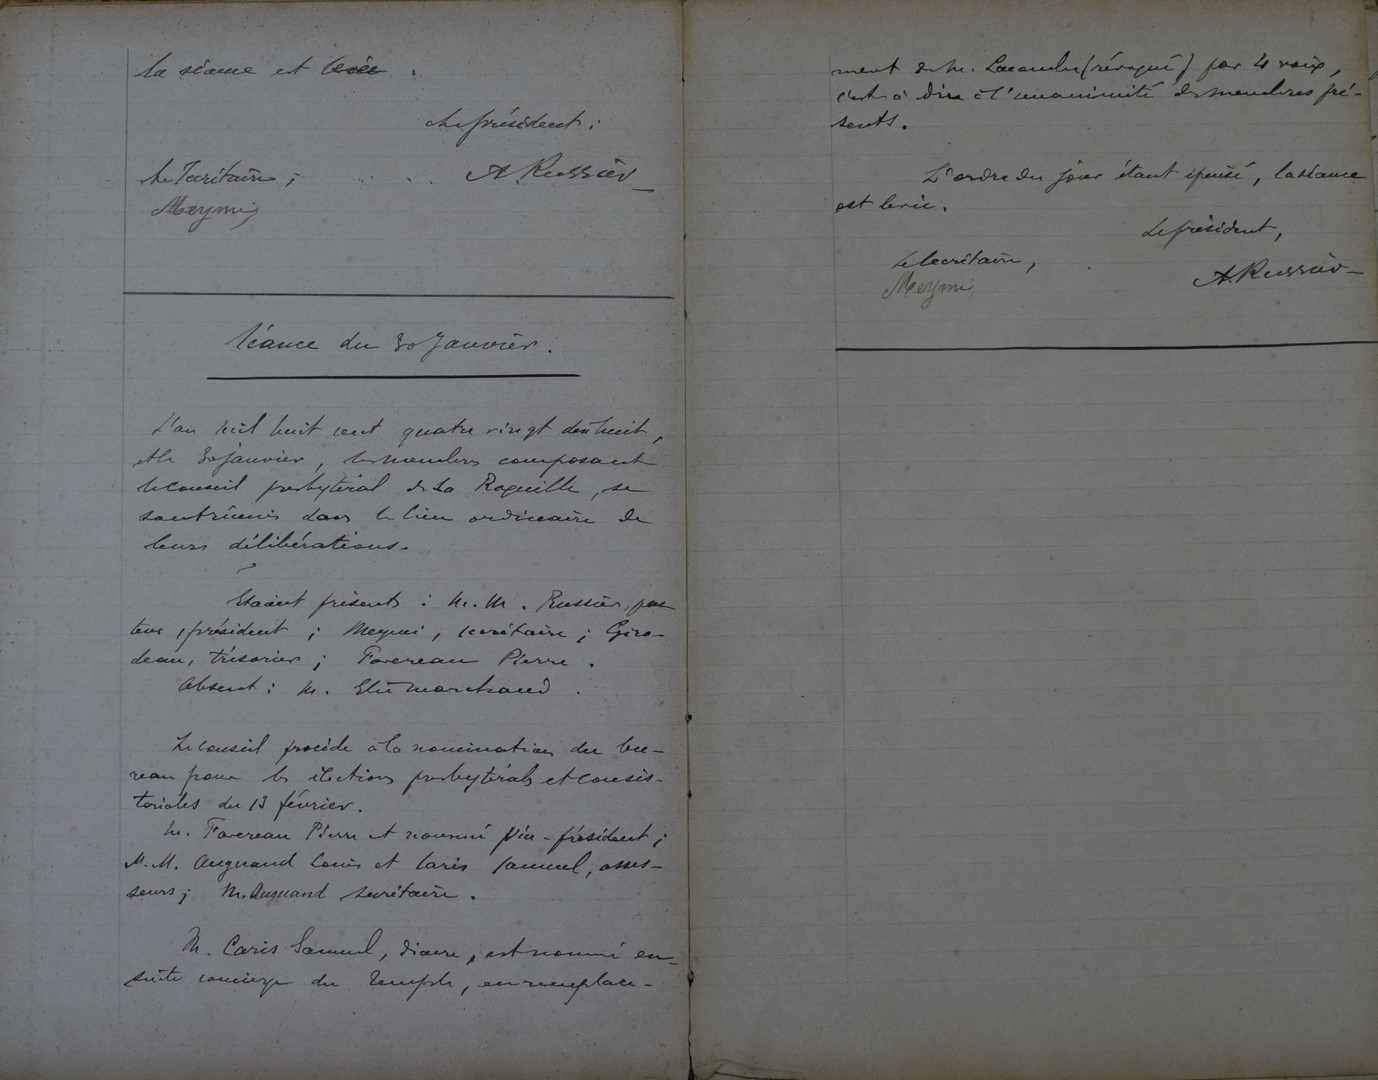 la séance est levée.
Le président :
Le Secrétaire ;
A. Russier
Meymi
Séance du 30 Janvier.
L'an mil huit cent quatre vingt dix huit,
et le 30 janvier, les membres composant
le conseil presbytéral de La Roquille, se
sont réunis dans le lieu ordinaire de
leurs délibérations.
Etaient présents : M.M. Russier, pas-
teur, président ; Meymi, secrétaire ; Giro-
deau, trésorier ; Favereau Pierre.
Absent : M. Elie Marchand.
Le conseil procède à la nomination du bu-
reau pour les élections presbytérales et consis-
toriales du 13 février.
M. Favereau Pierre est nommé Vice-président ;
M.M. Augnand Louis et Caris Samuel, asses-
seurs ; M. Augnand secrétaire.
M. Caris Samuel, diacre, est nommé en-
suite concierge du Temple, en remplace-
ment de M. Lacombe (révoqué) par 4 voix,
c'est à dire à l'unanimité des membres pré-
sents.
L'ordre du jour étant épuisé, la séance
est levée.
Le président,
Le Secrétaire,
A. Russier
Meymi